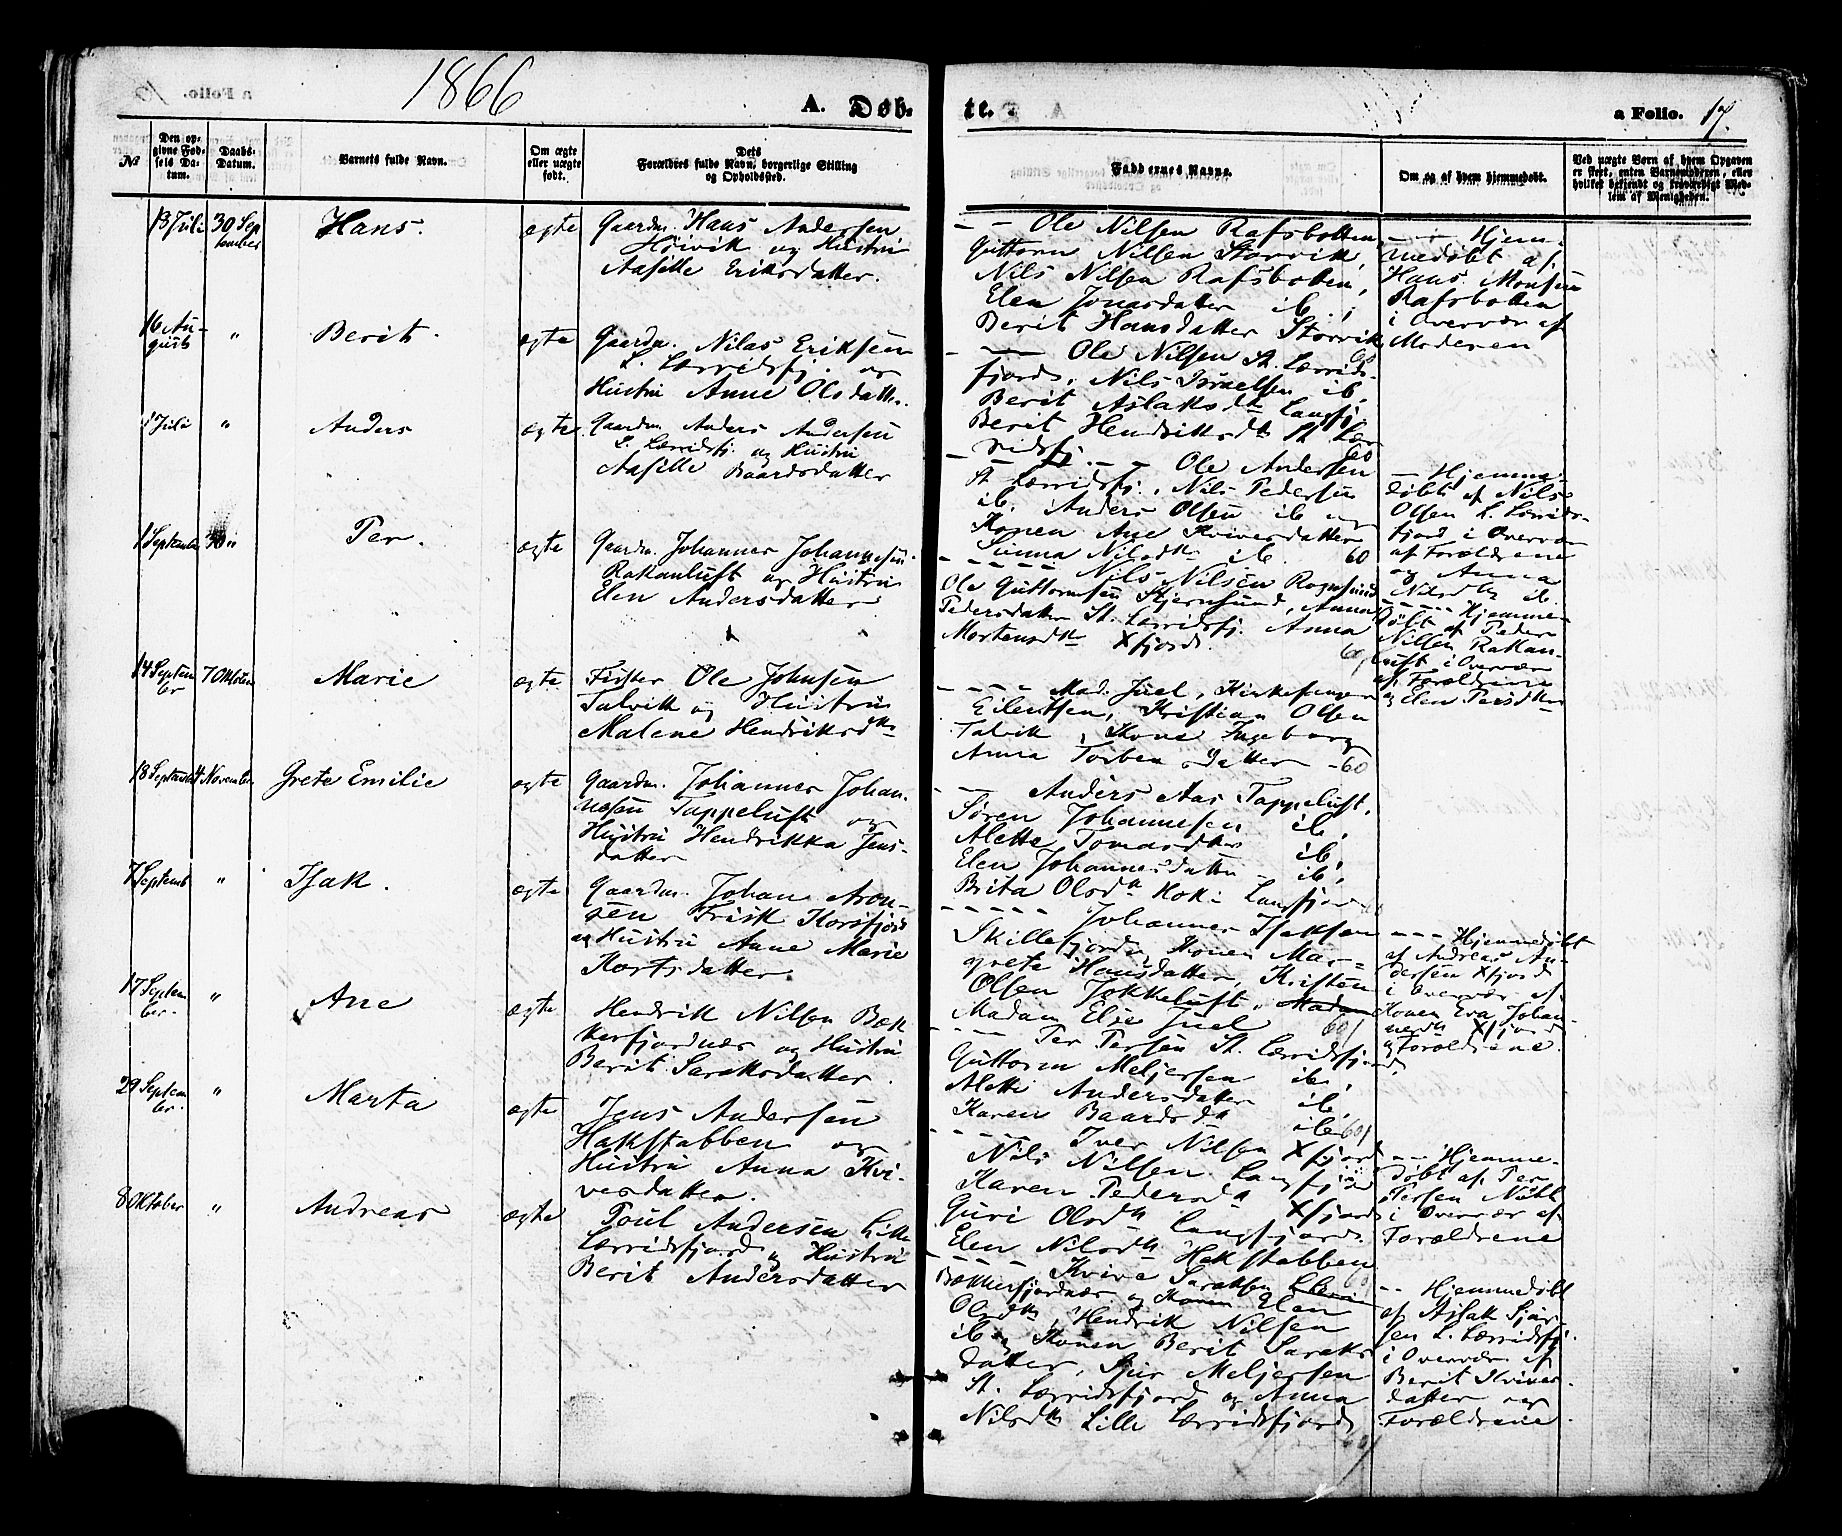 1866
A. Døb-
te.
a Folio. 17.
№
Den op-
givne Fød-
sels Da-
tum.
Daabs-
Datum.
Barnets fulde Navn.
Om ægte
eller uægte
født.
Dets
Forældres fulde Navn, borgerlige Stilling
og Opholdssted.
Faddernes Navne.
Om og af hvem hjemmedøbt.
Ved uægte Børn af hvem Opgaven
er skeet, enten Barnemoderen, eller
hvilket bekjendt og troværdigt Med-
lem af Menigheden.
13 Juli
30 Sep
tember
Hans.
ægte
Gaardm. Hans Andersen
Höivik og Hustru
Aasille Eriksdatter.
- - Ole Nilsen Rafsbotten
Guttorm Nilsen Storvik,
Nils Nilsen Rafsbotten,
Elen Jonasdatter ib.,
Berit Hansdatter Storvik
- - - Hjem-
medöbt af
Hans Monsen
Rafsbotten
i Overvær af
Moderen
16 Au-
gust
"
Berit.
ægte
Gaardm. Nilas Eriksen
L. Lærridsfj. og
Hustru Anne Olsdatter.
- - Ole Nilsen St. Lærrids-
fjord, Nils Israelsen ib.
Berit Aslaksdtr Langfj.
Berit Hendriksdtr St. Lær-
ridsfj. 60
1 Juli
"
Anders
ægte
Gaardm. Anders Andersen
L. Lærridsfj. og Hustru
Aasille Baardsdatter
- - - - Ole Andersen
St. Lærridsfj., Nils Pedersen
ib. Anders Olsen ib og
Konen Ane Kviversdatter
Sinna Nilsdtr ib. 60
- Hjemme-
döbt af Nils
Olsen L. Lærrids-
fjord i Overvær
af Forældrene
og Anna
Nilsdtr ib.
1 September
Per.
ægte
Gaardm. Johannes Johannesen
Rakanluft og Hustru
Elen Andersdatter
- - - - Nils Nilsen Rognsund
Ole Guttormsen Stjernsund, Anna
Pedersdatter St. Lærridsfj. Anna
Mortensdtr Xfjord. 60
- - - - Hjemme-
döbt af Peder
Nilsen Rakan-
luft i Overvær
af Forældrene
og Elen Persdtr
14 Septem
ber
7 Oktober
Marie
ægte
Fisker Ole Johnsen
Talvik og Hustru
Malene Hendriksdtr
- - - - Mad. Juel, Kirkesanger
Eilertsen, Kristian Olsen
Talvik, Kone Ingeborg
Anna Torbensdatter - 60
18 September
4 November
Grete Emilie
ægte
Gaardm. Johannes Johan-
nesen Tappeluft og
Hustru Hendrikka Jens-
datter
- - - Anders Aas Tappeluft,
Sören Johannesen ib,
Alette Tomasdtr ib,
Elen Johannesdatter ib,
Brita Olsdtr Langfjor
7 Septemb
"
Isak.
ægte
Gaardm. Johan Aron-
sen Frisk Korsfjord
og Hustru Anne Marie
Kortsdatter
- - - - - Johannes Isaksen
Skillefjord, Konen Mar-
grete Hansdatter, Kristen
Olsen Jokkeluft, Madam
Madam Else Juel 60
- - - Hjemmedöbt
af Andreas An-
dersen Xfjord
i Overvær af
Konen Eva Johan-
nesdtr Xfjord
og Forældrene.
17 Septem
ber.
"
Ane
ægte
Hendrik Nilsen Bæk
kerfjordnær og Hustru
Berit Saraksdatter.
- - - Per Persen St. Lærridsfjord
Guttorm Meljersen ib,
Alette Andersdatter ib,
Karen Baardsd ib 60
29 Septem
ber.
"
Marta
ægte
Jens Andersen
Hakstabben og
Hustru Anna Kvi-
versdatter.
- - - - Iver Nilsen Xfjord
Nils Nilsen Langfjord
Karen Pedersd Xfjord
Guri Olsdtr Langfjord.
Elen Nilsdtr Hakstabben
- - Hjemme-
döbt af Per
Persen
i Overvær af
Forældrene
8 Oktober
"
Andreas
ægte
Poul Andersen Lille
Lærridsfjord og Hustru
Berit Andersdatter
- - - - Kvive Saraksen
Bækkerfjordnær og Konen Elen
Olsdtr, Hendrik Nilsen
ib og Konen Berit Saraks
datter, Sjur Meljersen
St. Lærridsfjord og Anna
Nilsdtr Lille Lærridsfjord
60
- - Hjemmedöbt
af Aslak Sjur-
sen L. Lærridsfj.
i Overvær af
Berit Kvivers-
datter og
Forældrene.